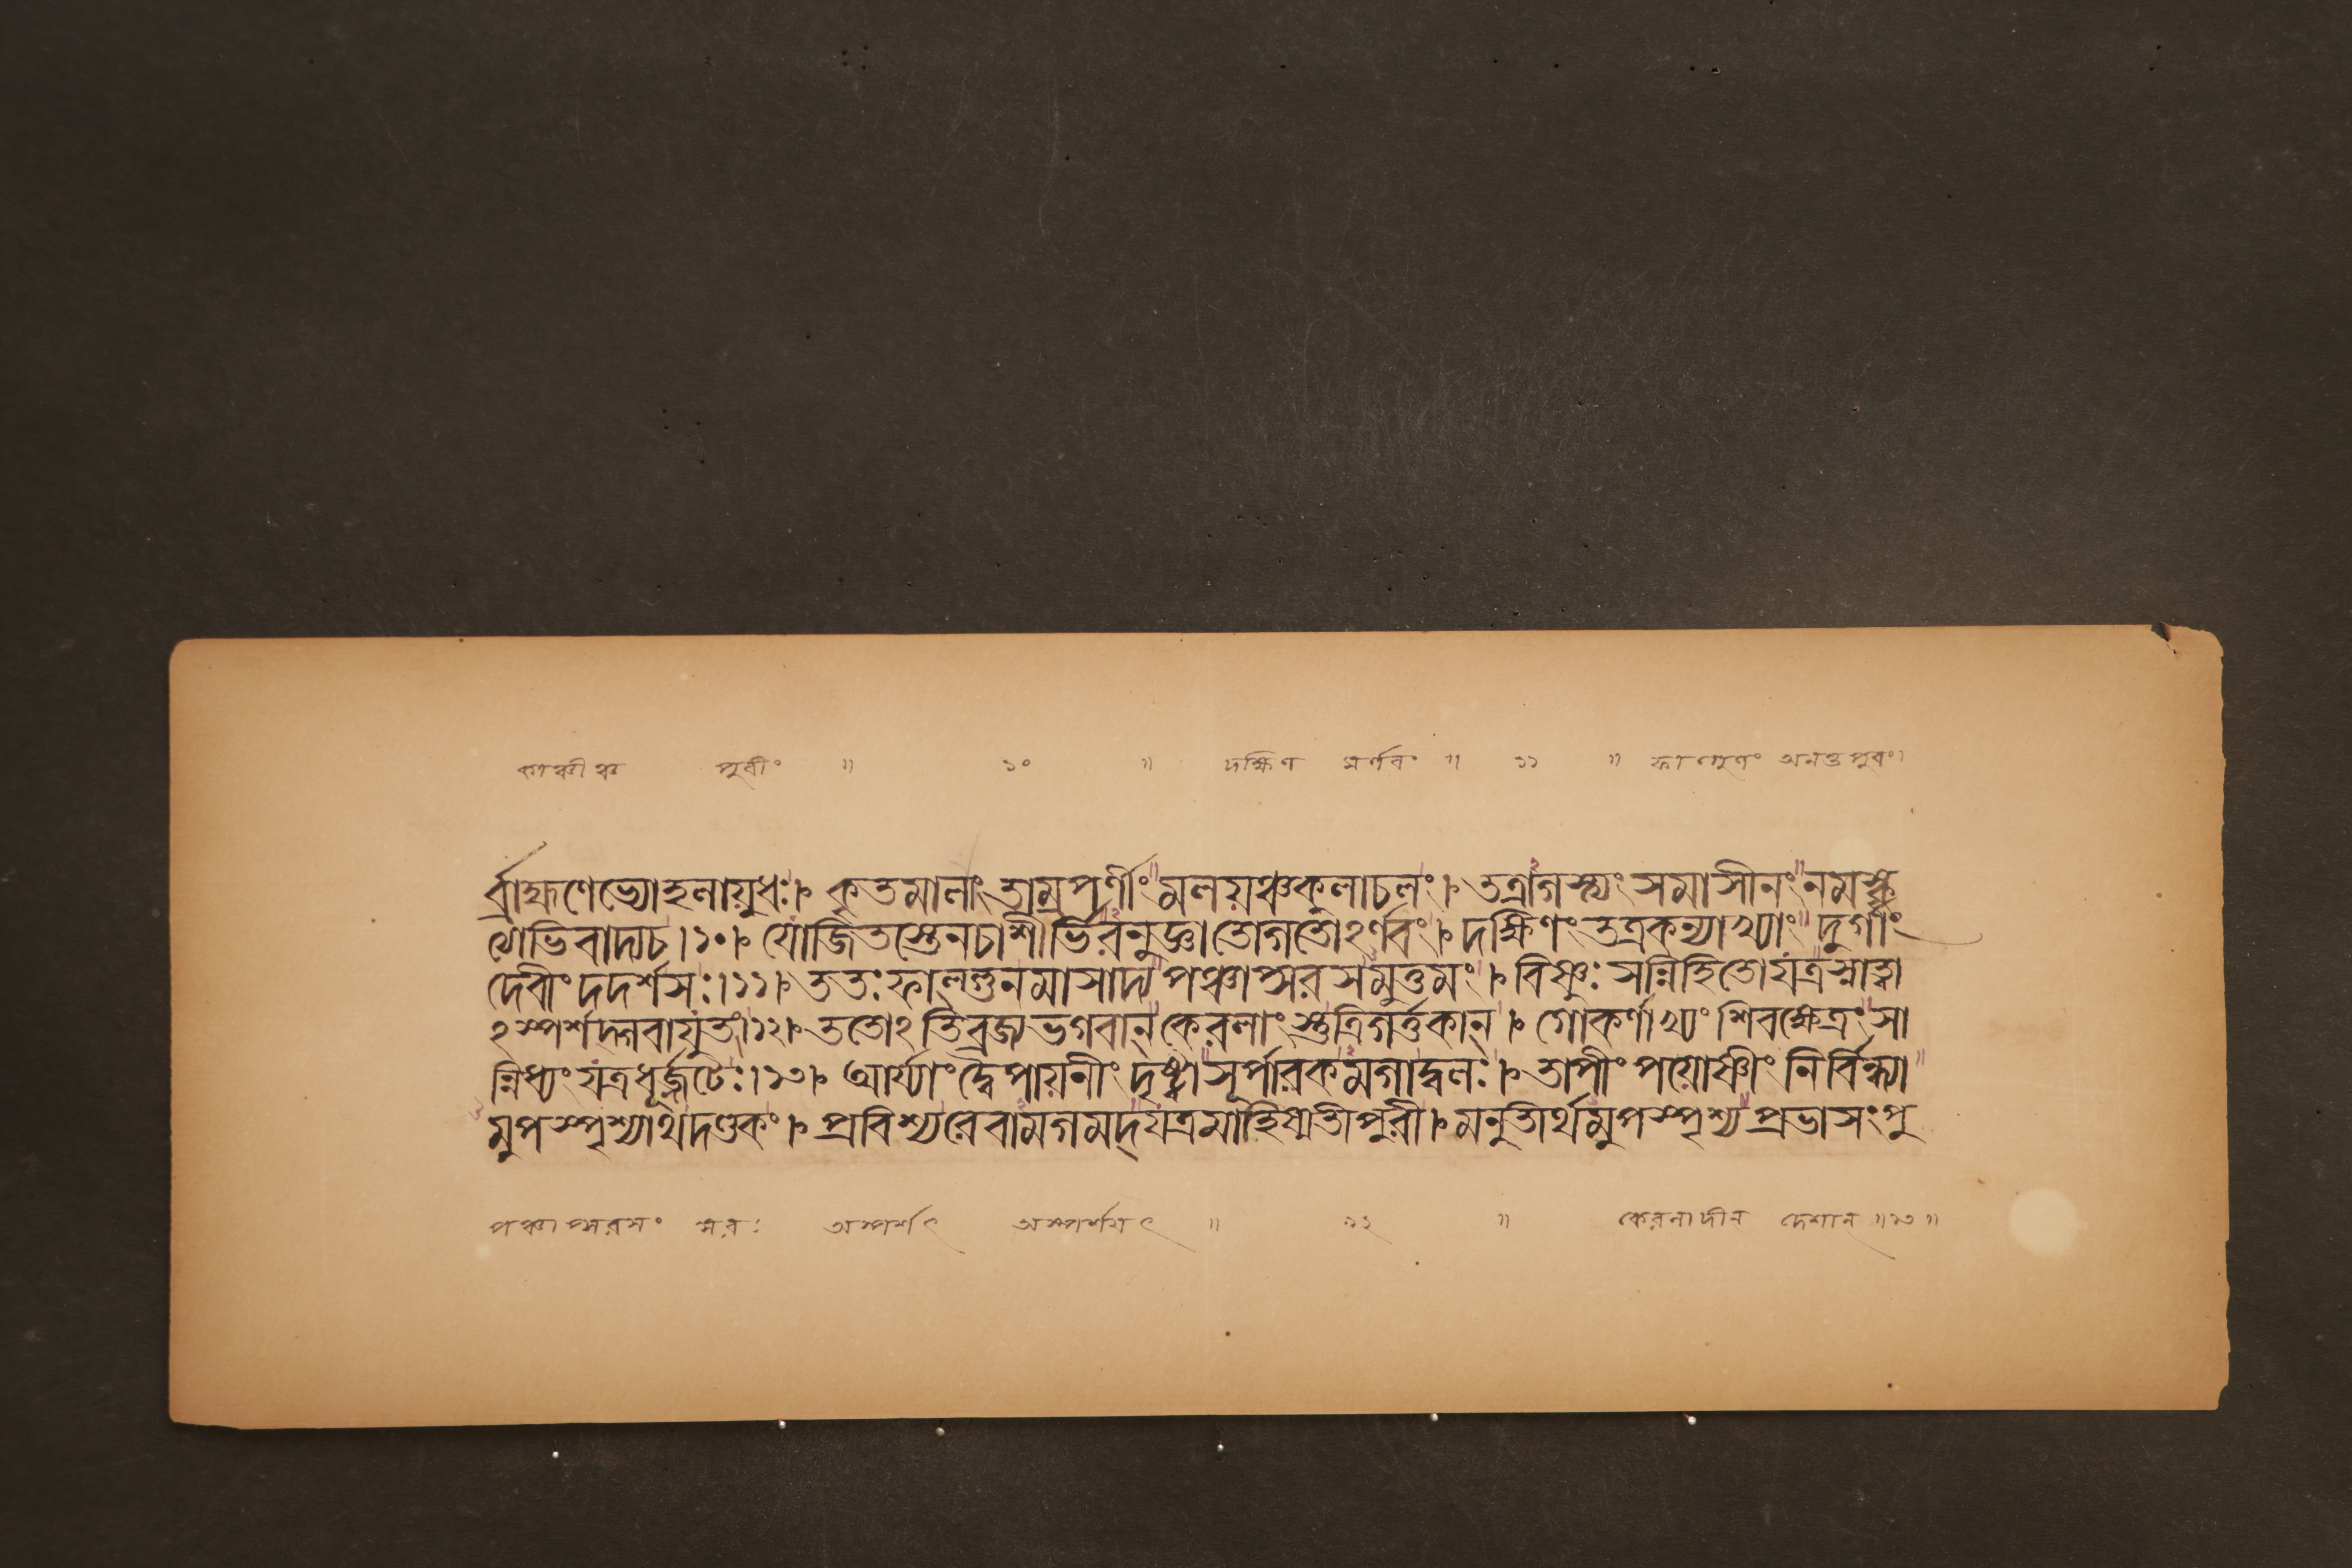 কাঞ্চীঞ্চ পুরীং ॥ ১০ ॥ দক্ষিণ মর্ণবং ॥ ১১ ॥ ফাল্গুণং অনন্তপুরং।
র্ব্রাহ্মণেভ্যোহলায়ুধঃ।৮ কৃতমালাং তাম্রপর্ণীং মলয়ঞ্চকুলাচলং।৮ তত্রাগস্ত্যং সমাসীনং নমস্কৃ
ত্যাভিবাদ্যচ।১০।৮ যোজিতস্তেনচাশীর্ভিরনুজ্ঞাতোগতোঽর্ণবং।৮ দক্ষিণং তত্রকন্যাখ্যাং দুর্গাং
দেবীং দদর্শসঃ।১১।৮ ততঃ ফাল্গুনমাসাদ্য পঞ্চাপ্সরসমুত্তমং।৮ বিষ্ণুঃ সন্নিহিতোযত্রস্নাত্বা
ঽস্পর্শদ্গবাযুতং।১২।৮ ততোঽভিব্রজ্যভগবান্ কেরলাং স্তুত্রিগর্ত্তকান্।৮ গোকর্ণাখ্যং শিবক্ষেত্রং সা
ন্নিধ্যং যত্রধূর্জ্জটেঃ।১৩।৮ আর্য্যাং দ্বৈপায়নীং দৃষ্ট্বাসূর্পারকমগাদ্বলঃ।৮ তাপীং পয়োষ্ণীং নির্বিন্ধ্যা
মুপস্পৃশ্যাথদণ্ডকং।৮ প্রবিশ্যরেবামগমদ্যত্রমাহিষ্মতীপুরী।৮ মনুতীর্থমুপস্পৃশ্য প্রভাসংপু
পঞ্চাপ্সরসং সরঃ অস্পর্শৎ অস্পর্শয়ৎ ॥ ১২ ॥ কেরলাদীন দেশান্ ॥১৩॥